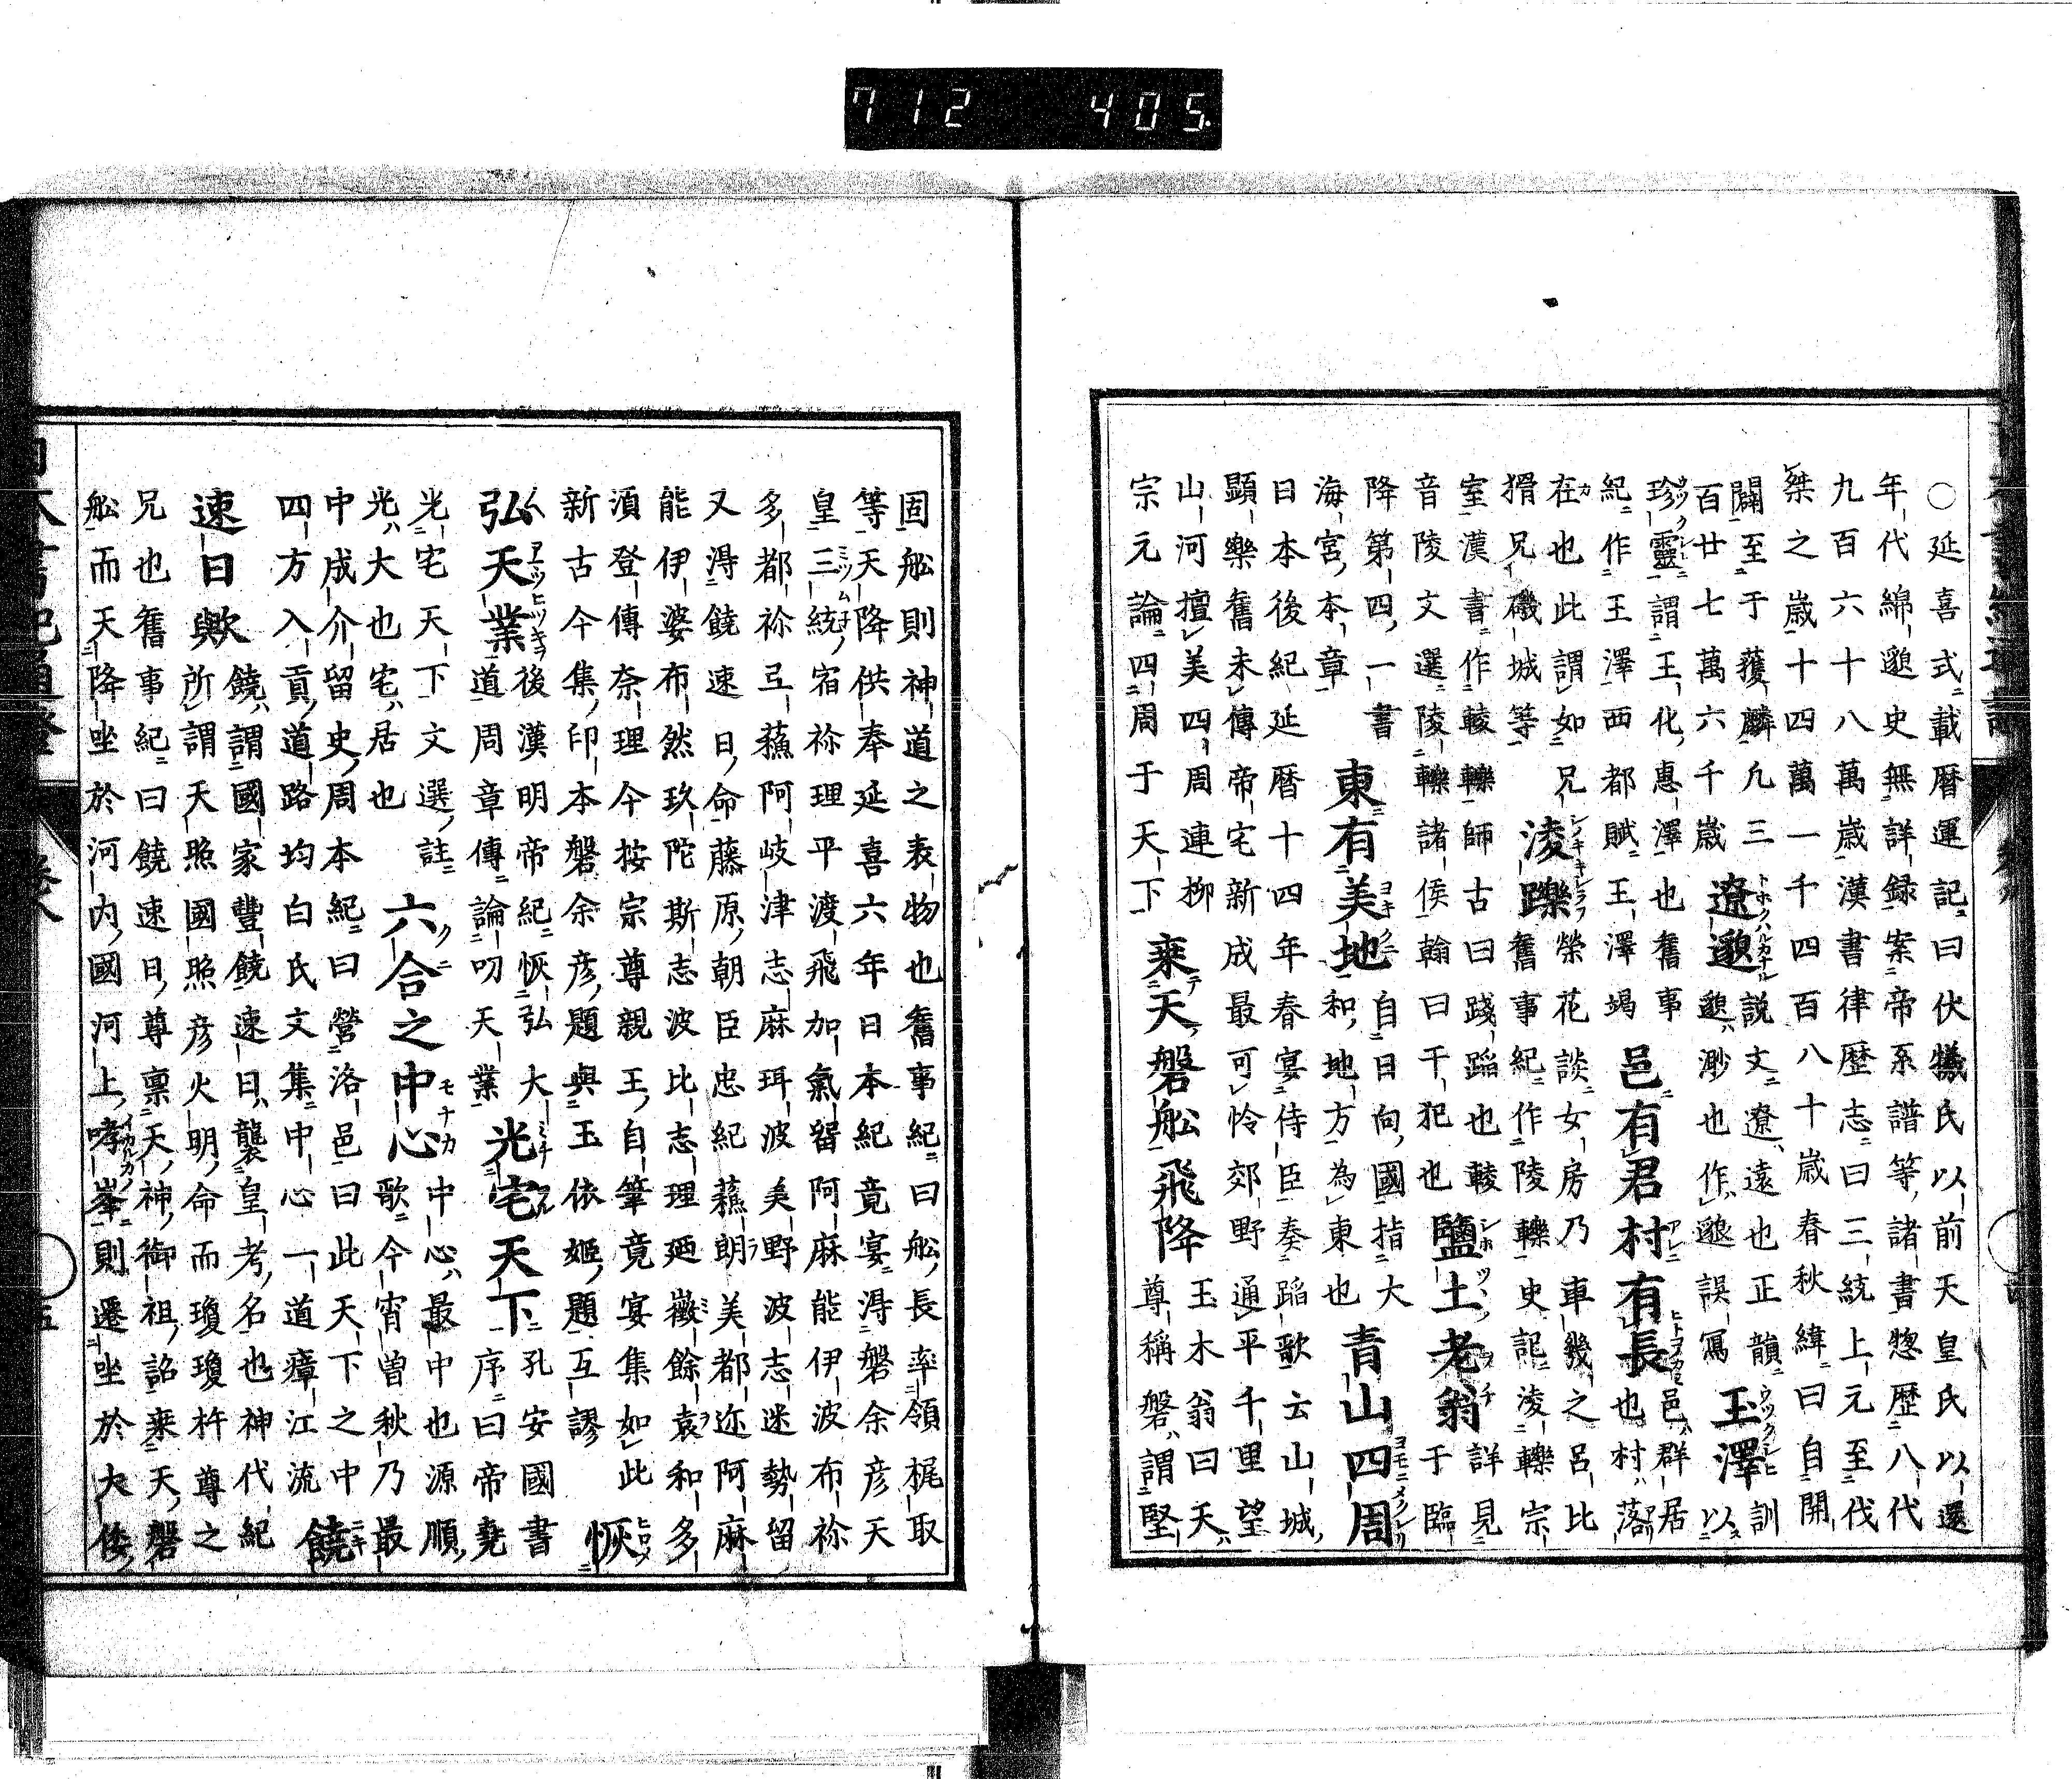 ○延喜式載暦運記曰伏犧氏以前天皇氏以還
年代綿邈史無詳録案帝系譜等諸書惣歴八代
九百六十八萬歳漢書律歴志曰三統上元至伐
桀之歳十四萬一千四百八十歳春秋緯曰自開
闢至于獲麟凡三
百廿七萬六千歳
遼邈
説文遼遠也正韻
邈渺也作邈誤寫
玉澤
訓
以
珍靈謂王化惠澤也舊事
紀作王澤西都賦王澤竭
邑有君村有長
邑群居
也村落
在也此謂如兄
猾兄磯城等
淩轢
榮花談女房乃車幾之呂比
舊事紀作陵轢史記淩轢宗
室漢書作輘轢師古曰踐蹈也輘
音陵文選陵轢諸侯翰曰干犯也
鹽土老翁
詳見
于臨
降第四一書
海宮本章
東有美地
自日向國指大
和地方為東也
青山四周
日本後紀延暦十四年春宴侍臣奏蹈歌云山城
顯樂舊未傳帝宅新成最可怜郊野通平千里望
山河擅美四周連柳
宗元論四周于天下
乘天磐舩飛降
玉木翁曰天
尊稱磐謂堅
固舩則神道之表物也舊事紀曰舩長率領梶取
等天降供奉延喜六年日本紀竟宴得磐余彦天
皇三統宿祢理平渡飛加氣留阿麻能伊波布祢
多都祢弖蘓阿岐津志麻珥波美野波志迷勢留
又得饒速日命藤原朝臣忠紀蘓朗美都迩阿麻
能伊婆布然玖陀斯志波比志理廼徽餘袁和多
湏登傳奈理今按宗尊親王自筆竟宴集如此
新古今集印本磐余彦題與玉依姫題互謬
恢
弘天業
後漢明帝紀恢弘大
道周章傳論叨天業
光宅天下
孔安國書
序曰帝堯
光宅天下文選註
光大也宅居也
六合之中心
中心最中也源順
歌今宵曽秋乃最
中成介留史周本紀曰營洛邑曰此天下之中
四方入貢道路均白氏文集中心一道瘴江流
饒
速日歟
饒謂國家豐饒速日襲皇考名也神代紀
所謂天照國照彦火明命而瓊瓊杵尊之
兄也舊事紀曰饒速日尊稟天神御祖詔乘天磐
舩而天降坐於河内國河上哮峯則遷坐於大倭
712 405